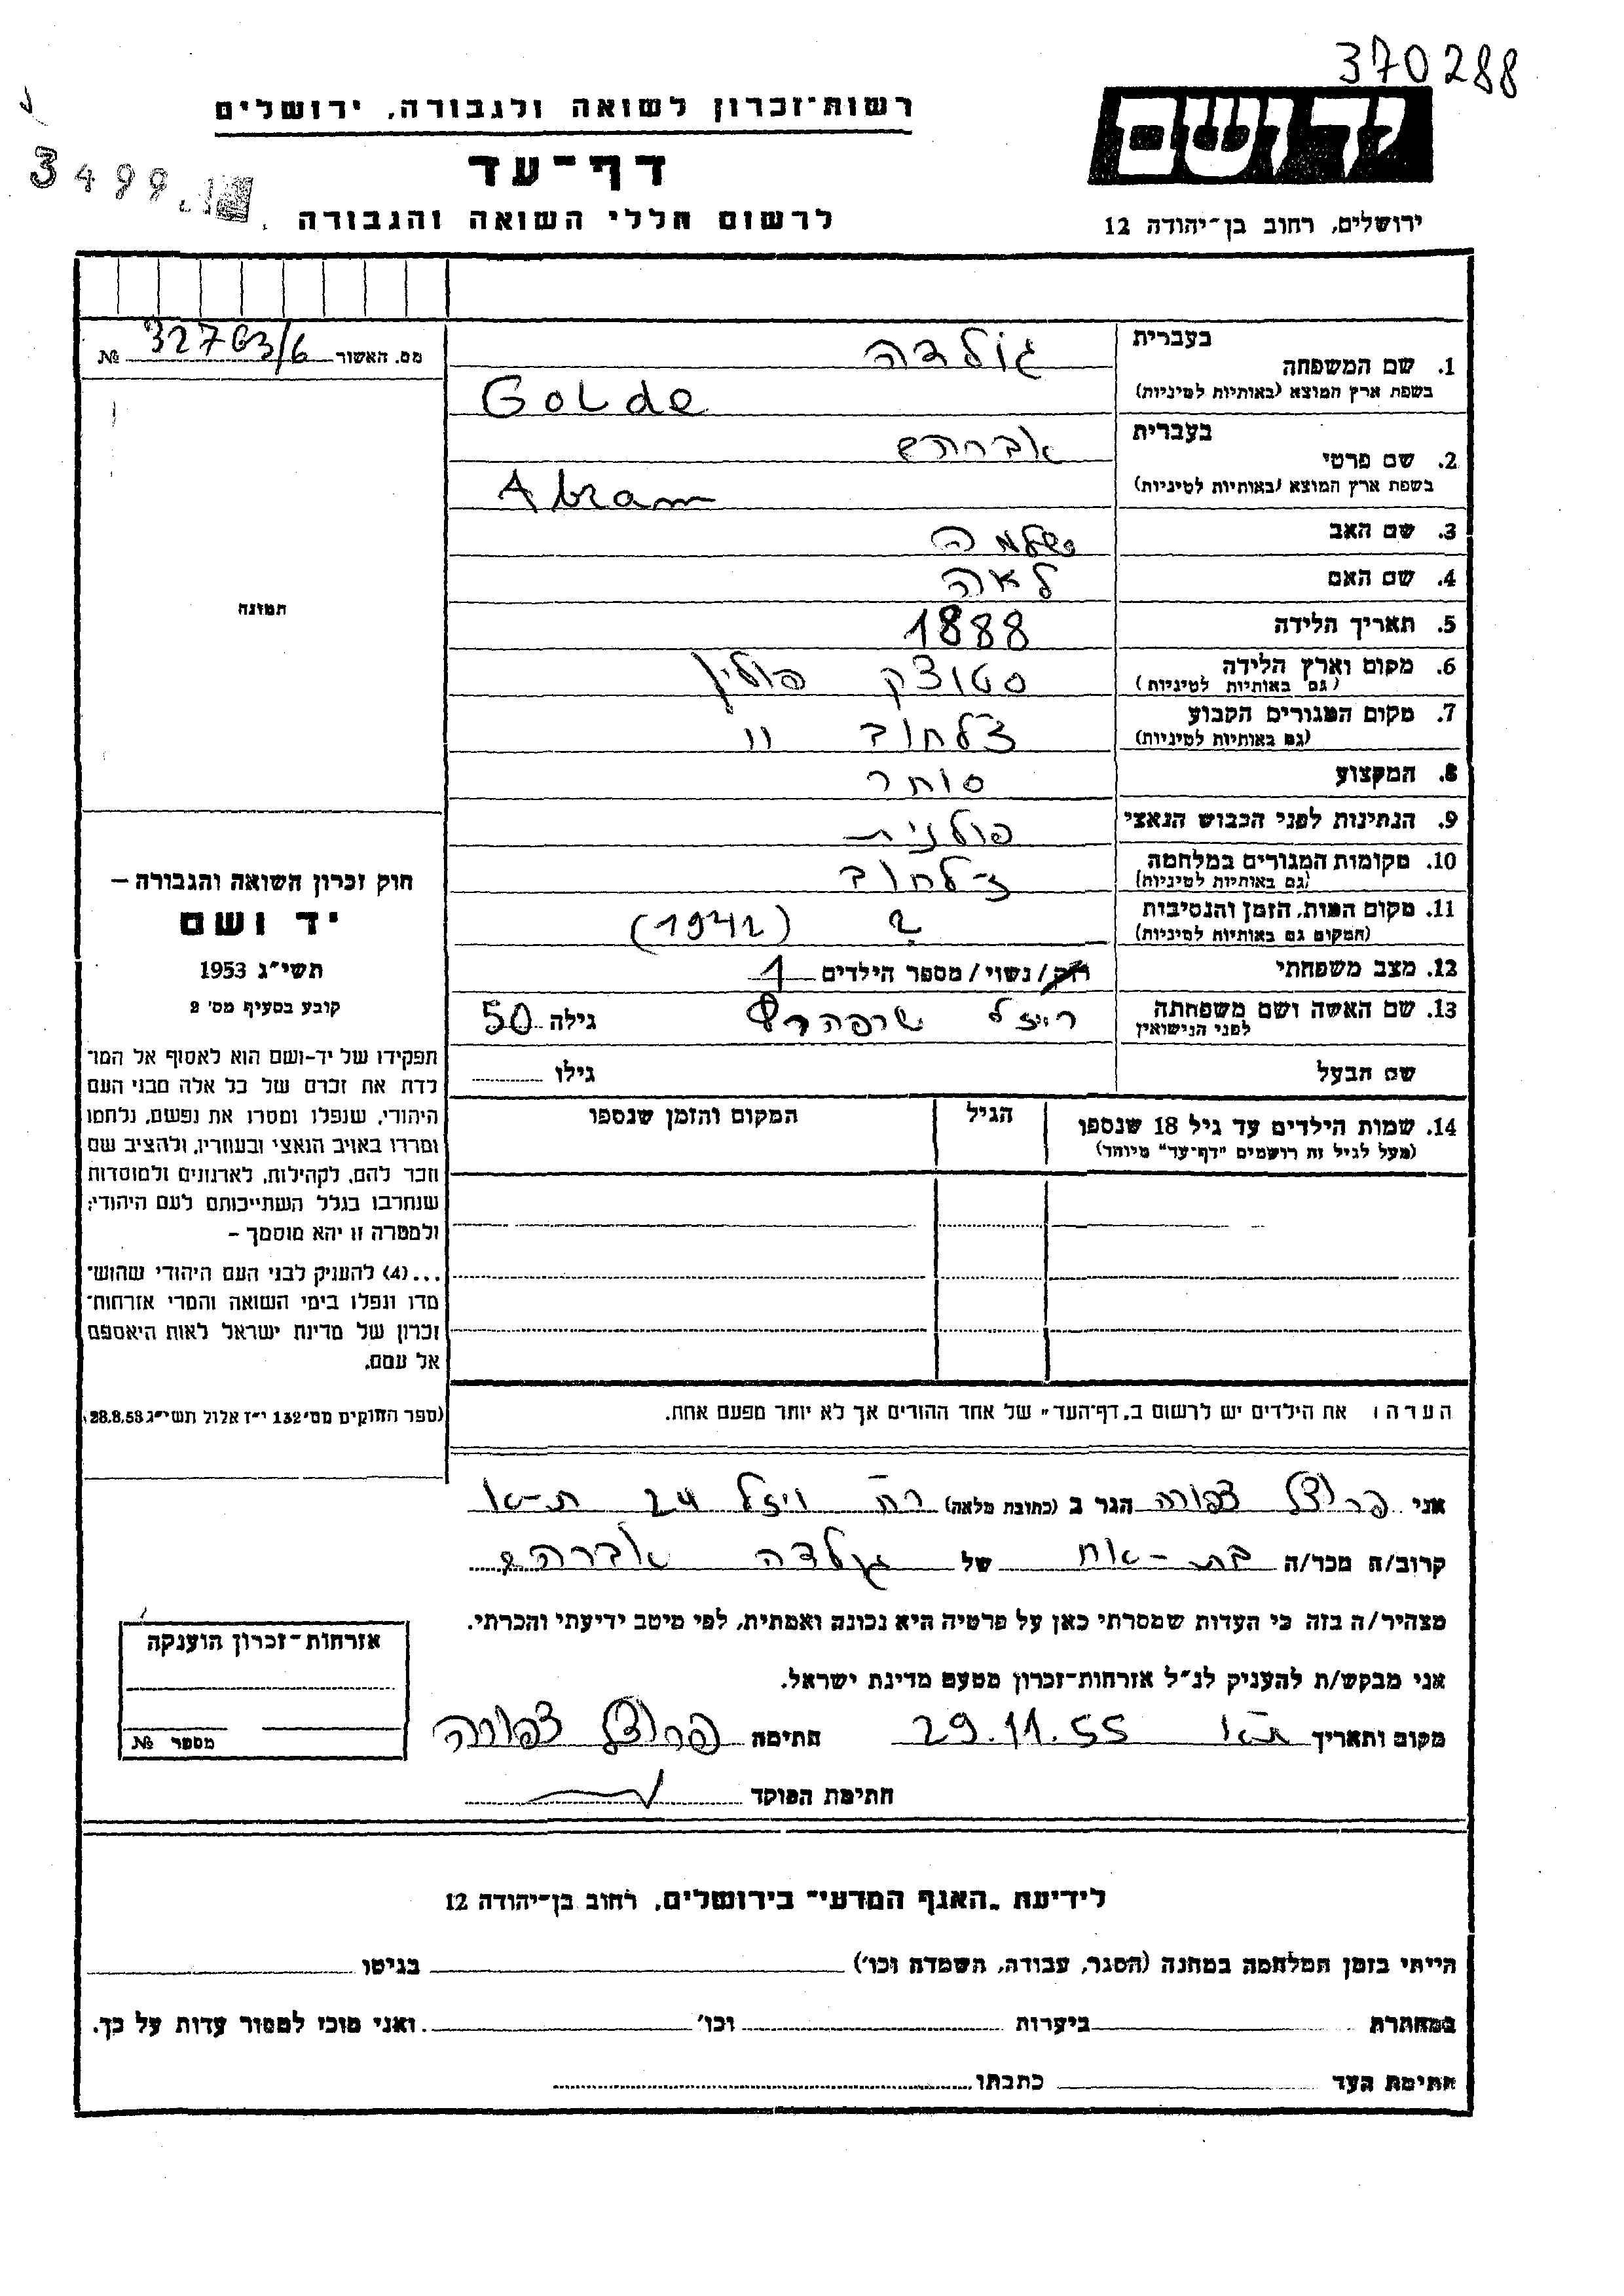 370288
רשות־זכרון לשואה ולגבורה, ירושלים
יד ושם
דף־עד
3499
לרשום חללי השואה והגבורה
ירושלים, רחוב בן־יהודה 12
מס. האשור 32763/6 №
בעברית גולדה
1. שם המשפחה
בשפת ארץ המוצא (באותיות לטיניות) Golde
בעברית אברהם
2. שם פרטי
בשפת ארץ המוצא (באותיות לטיניות) Abram
3. שם האב שלמה
4. שם האם לאה
5. תאריך הלידה 1888
6. מקום וארץ הלידה סטוצק פולין
(גם באותיות לטיניות)
7. מקום המגורים הקבוע ז'לחוב "
(גם באותיות לטיניות)
8. המקצוע סוחר
9. הנתינות לפני הכבוש הנאצי פולנית
10. מקומות המגורים במלחמה ז'לחוב
(גם באותיות לטיניות)
11. מקום המות, הזמן והנסיבות ? (1942)
(המקום גם באותיות לטיניות)
12. מצב משפחתי רוק/נשוי/מספר הילדים 1
13. שם האשה ושם משפחתה לפני הנישואין רייזל גילה 50
שם הבעל גילו
14. שמות הילדים עד גיל 18 שנספו הגיל המקום והזמן שנספו
(מעל לגיל זה רושמים "דף־עד" מיוחד)
התמונה
חוק זכרון השואה והגבורה –
יד ושם
תשי"ג 1953
קובע בסעיף מס' 2
תפקידו של יד-ושם הוא לאסוף אל המו־
לדת את זכרם של כל אלה מבני העם
היהודי, שנפלו ומסרו את נפשם, נלחמו
ומרדו באויב הנאצי ובעוזריו, ולהציב שם
וזכר להם, לקהילות, לארגונים ולמוסדות
שנחרבו בגלל השתייכותם לעם היהודי;
ולמטרה זו יהא מוסמך –
...(4) להעניק לבני העם היהודי שהוש־
מדו ונפלו בימי השואה והמרי אזרחות־
זכרון של מדינת ישראל לאות היאספם
אל עמם.
(ספר החוקים מס' 132 י"ז אלול תשי"ג 28.8.53)
הערה: את הילדים יש לרשום ב„דף־העד" של אחד ההורים אך לא יותר מפעם אחת.
אני צפורה הגר ב (כתובת מלאה) רח ויזל 24 ת-א
קרוב/ה מכר/ה בת-אח של גולדה אברהם
מצהיר/ה בזה כי העדות שמסרתי כאן על פרטיה היא נכונה ואמתית, לפי מיטב ידיעתי והכרתי.
אני מבקש/ת להעניק לנ"ל אזרחות־זכרון מטעם מדינת ישראל.
מקום ותאריך ת"א 29.11.55 חתימה צפורה
חתימת הפוקד
אזרחות־זכרון הוענקה
מספר №
לידיעת „האגף המדעי" בירושלים, רחוב בן־יהודה 12
הייתי בזמן המלחמה במחנה (הסגר, עבודה, השמדה וכו') בגיטו
במחתרת ביערות וכו' ואני מוכן למסור עדות על כך.
חתימת העד כתבתו